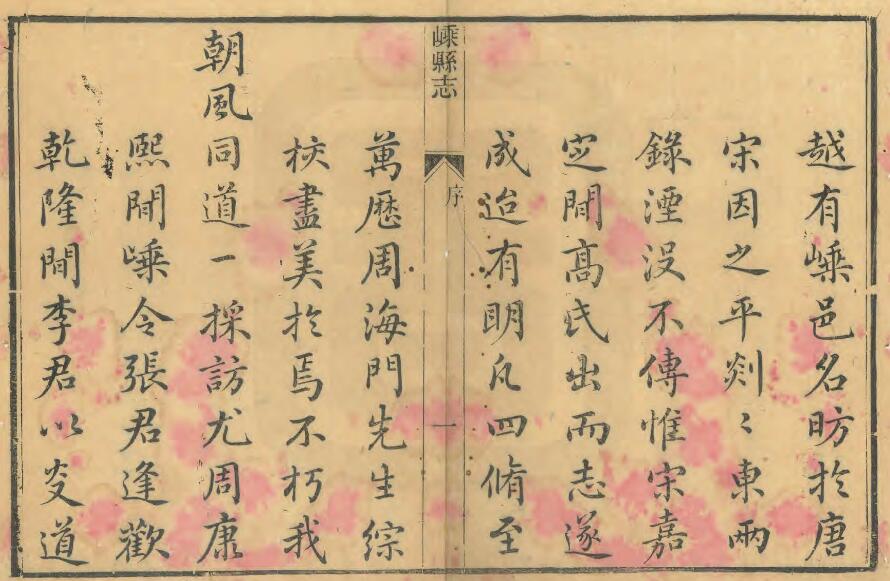 越有嵊邑名昉扵唐
宋因之平剡〻東兩
錄湮没不傳惟宋嘉
㝎間髙氏出而志遂
成迨有眀凡四脩至
嵊縣志
序
一
萬歷周海門先生綜
核盡美扵焉不朽我
朝風同道一採訪尤周康
熙間嵊令張君逢歡
乾隆間李君以炎道